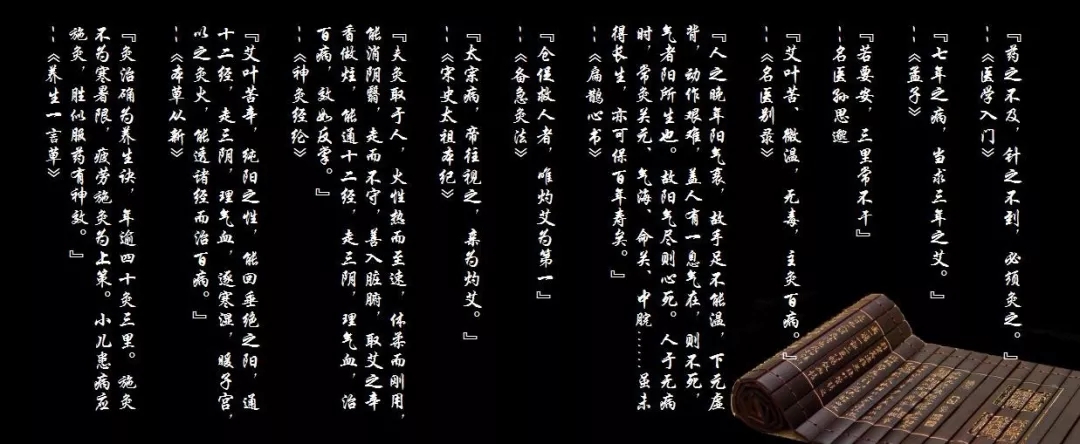 『药之不及，针之不到，必须灸之。』
--《医学入门》
『七年之病，当求三年之艾。』
--《孟子》
『若要安，三里常不干』
--名医孙思邈
『艾叶苦、微温，无毒，主灸百病。』
--《名医别录》
『人之晚年阳气衰，故手足不能温，下元虚
背，动作艰难，盖人有一息气在，则不死，
气者阳所生也。故阳气尽则心死。人于无病
时，常灸关元、气海、命关、中脘……虽未
得长生，亦可保百年寿矣。』
--《扁鹊心书》
『仓促救人者，唯灼艾为第一』
--《备急灸法》
『太宗病，帝往视之，亲为灼艾。』
--《宋史太祖本纪》
『夫灸取于人，火性热而至速，体柔而刚用，
能消阴翳，走而不守，善入脏腑，取艾之辛
香做炷，能通十二经，走三阴，理气血，治
百病，效如反掌。』
--《神灸经纶》
『艾叶苦辛，纯阳之性，能回垂绝之阳，通
十二经，走三阴，理气血，逐寒湿，暖子宫，
以之灸火，能透诸经而治百病。』
--《本草从新》
『灸治确为养生诀，年逾四十灸三里。施灸
不为寒暑限，疲劳施灸为上策。小儿患病应
施灸，胜似服药有神效。』
--《养生一言草》